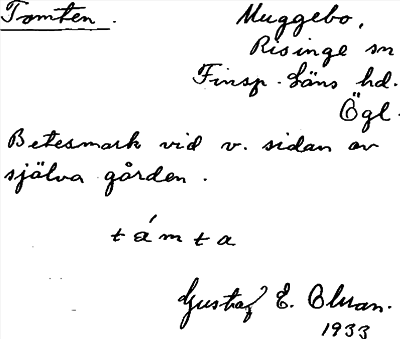 Tomten.
Muggebo,
Risinge sn
Finsp. Läns hd.
Ögl.
Betesmark vid v. sidan av
själva gården.
támta
Gustaf E. Olson.
1933